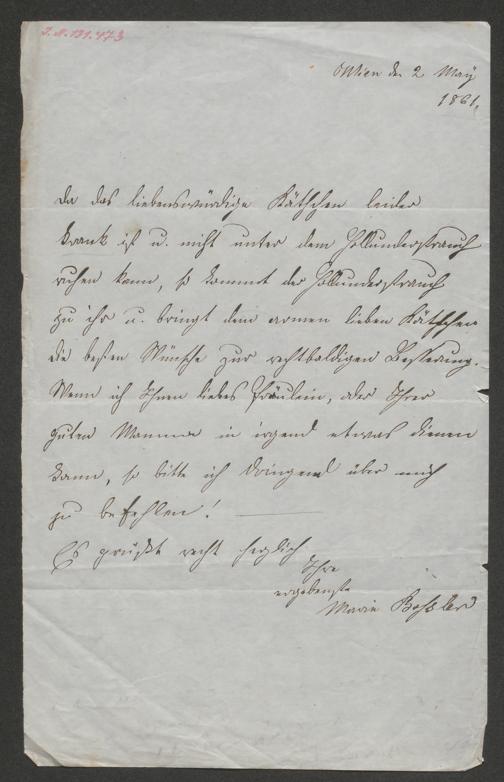 I.N. 131.473
Wien den 2 May
1861.
Da das liebenswürdige Käthchen leider
krank ist u. nicht unter dem Hollunderstrauch
ruhen kann, so kommt der Hollunderstrauch
zu ihr u. bringt dem armen lieben Käthchen
die besten Wünsche zur rechtbaldigen Besserung.
Wenn ich Ihnen liebes Fräulein, oder Ihrer
guten Mamma in irgend etwas dienen
kann, so bitte ich dringend über mich
zu befehlen!
Es grüßt recht herzlich
Ihre
ergebenste
Marie